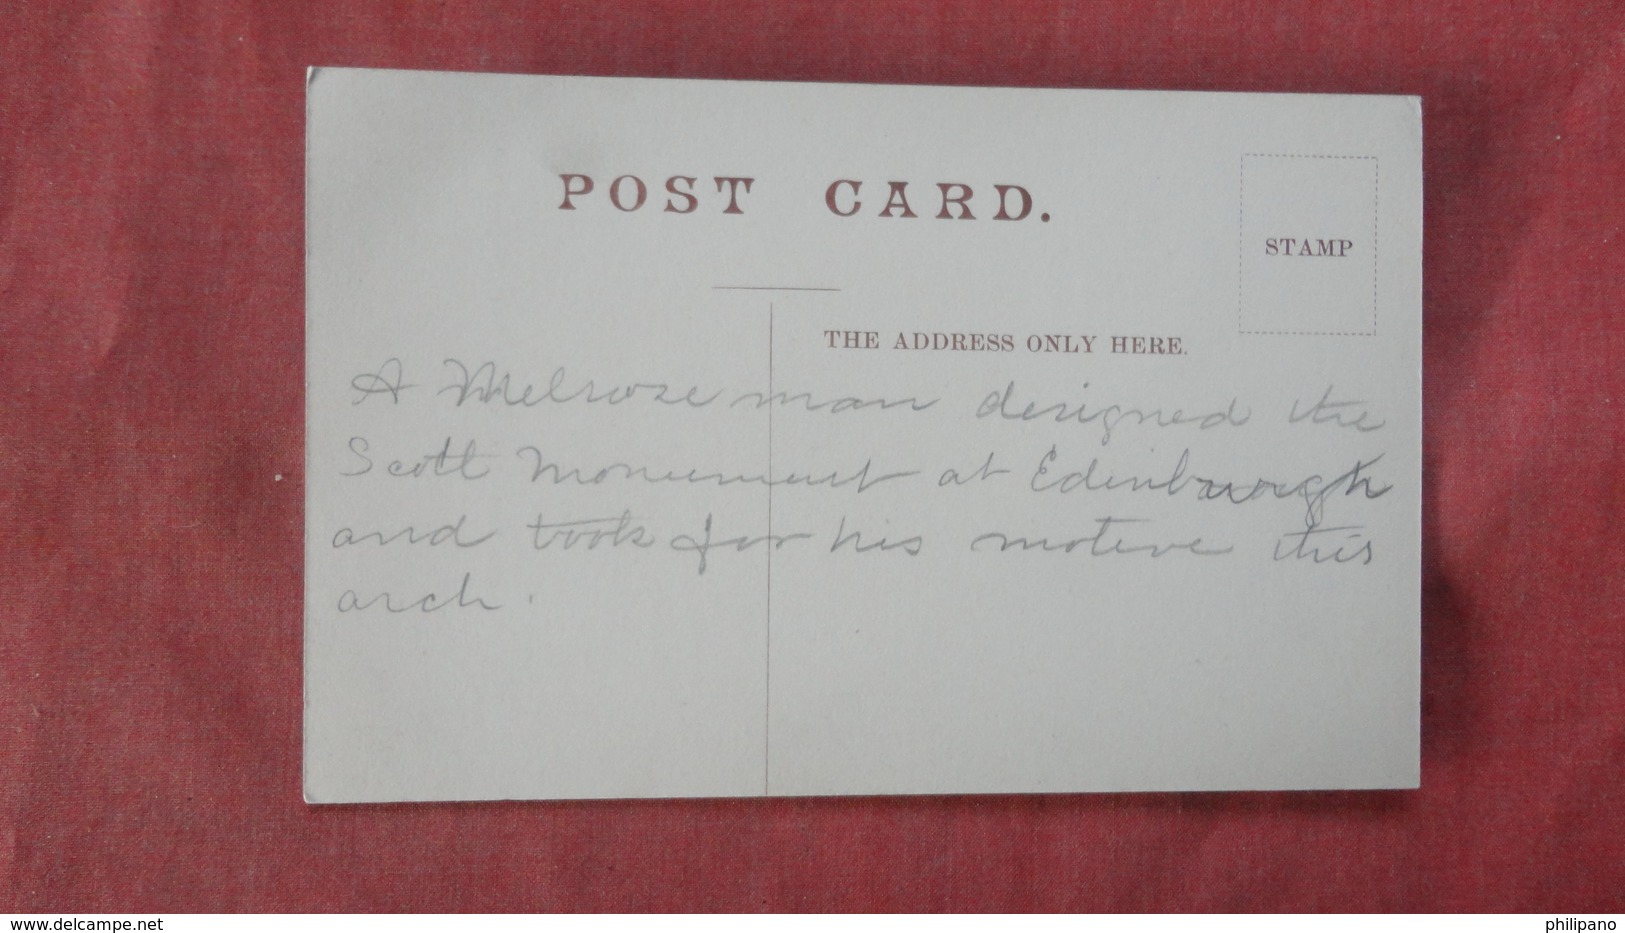 POST CARD.
STAMP
THE ADDRESS ONLY HERE.
A Melrose man designed the
Scott Monument at Edinbourgh
and took for his motive this
arch.
www.delcampe.net
philipano